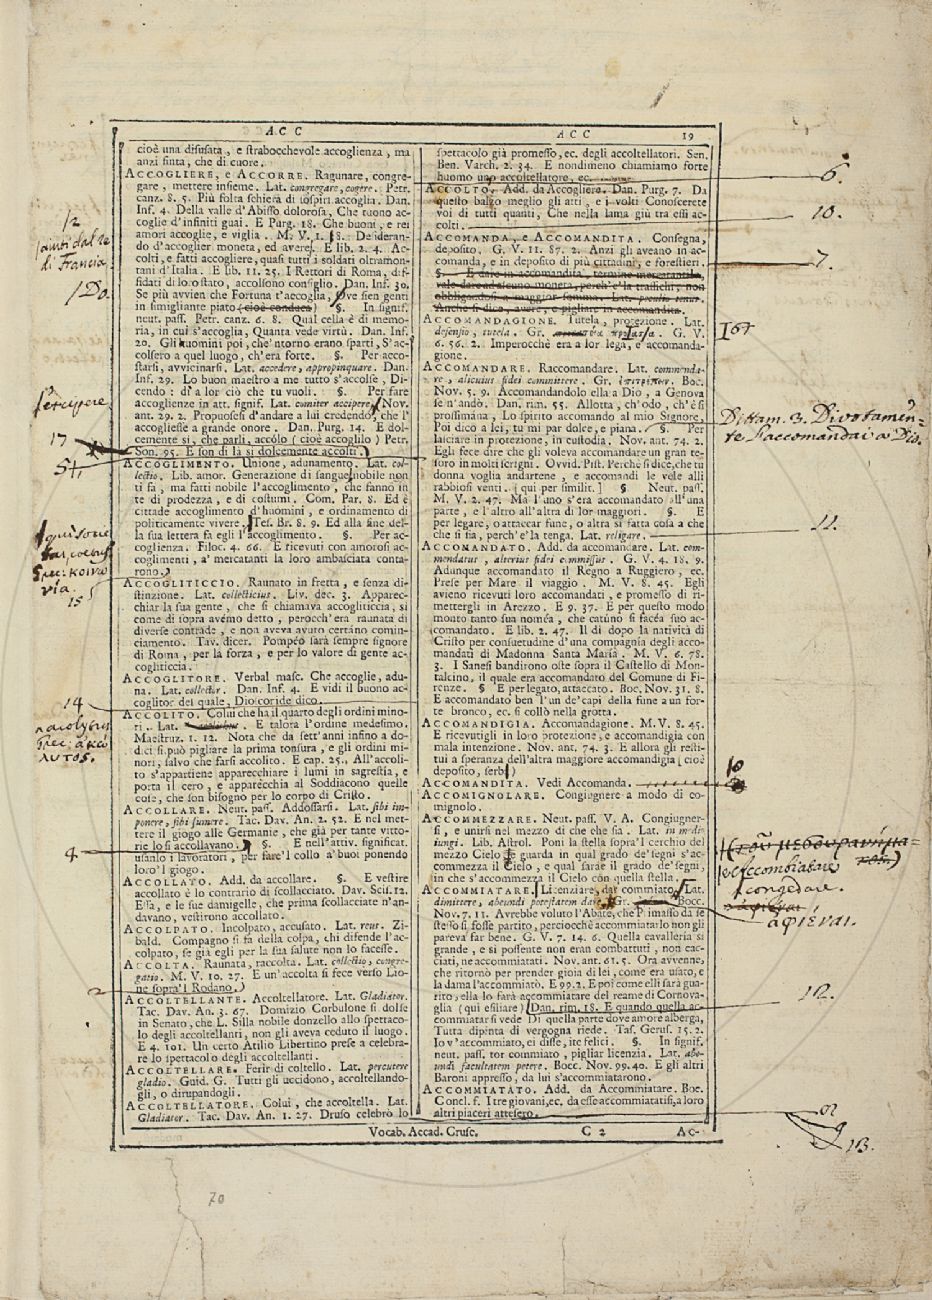 ACC
ACC 19
cioè una disusata, e strabocchevole accoglienza, ma
anzi finta, che di cuore.
ACCOGLIERE, e ACCORRE. Ragunare, congre-
gare, mettere insieme. Lat. congregare, cogere. Petr.
canz. 8. 5. Più folta schiera di sospiri accoglia. Dan.
Inf. 4. Della valle d'Abisso dolorosa, Che tuono ac-
coglie d'infiniti guai. E Purg. 18. Che buoni, e rei
amori accoglie, e viglia. M. V. 1. 18. Desideran-
do d'accoglier moneta, ed avere. E lib. 2. 4. Ac-
colti, e fatti accogliere, quasi tutti i soldati oltramon-
tani d'Italia. E lib. 11. 25. I Rettori di Roma, dif-
fidati di loro stato, accolsono consiglio. Dan. Inf. 30.
Se più avvien che Fortuna t'accoglia, Ove sien genti
in simigliante piato (cioè conduca) §. In signif.
neut. pass. Petr. canz. 6. 8. Qual cella è di memo-
ria, in cui s'accoglia, Quanta vede virtù. Dan. Inf.
20. Gli huomini poi, che'ntorno erano sparti, S'ac-
colsero a quel luogo, ch'era forte. §. Per acco-
starsi, avvicinarsi. Lat. accedere, appropinquare. Dan.
Inf. 29. Lo buon maestro a me tutto s'accolse, Di-
cendo: di a lor ciò che tu vuoli. §. Per fare
accoglienze in att. signif. Lat. comiter accipere. Nov.
ant. 29. 2. Proposesi d'andare a lui credendo, che l'
accogliesse a grande onore. Dan. Purg. 14. E dol-
cemente si, che parli, accólo (cioè accoglilo) Petr.
Son. 95. E son di là sì dolcemente accolti.
ACCOGLIMENTO. Unione, adunamento. Lat. col-
lectio. Lib. amor. Generazione di sangue nobile non
ti fa, ma fatti nobile l'accoglimento, che fanno in
te di prodezza, e di costumi. Com. Par. 8. Ed è
cittade accoglimento d'huomini, e ordinamento di
politicamente vivere. Tes. Br. 8. 9. Ed alla fine del-
la sua lettera fa egli l'accoglimento. §. Per ac-
coglienza. Filoc. 4. 66. E ricevuti con amorosi ac-
coglimenti, a' mercatanti la loro ambasciata conta-
rono.
ACCOGLITICCIO. Raunato in fretta, e senza di-
stinzione. Lat. collecticius. Liv. dec. 3. Apparec-
chiar la sua gente, che si chiamava accogliticcia, si
come di sopra avemo detto, perocch'era raunata di
diverse contrade, e non aveva avuto certáno comin-
ciamento. Tav. dicer. Pompéo sarà sempre signore
di Roma, per la forza, e per lo valore di gente ac-
cogliticcia.
ACCOGLITORE. Verbal masc. Che accoglie, adu-
na. Lat. collector. Dan. Inf. 4. E vidi il buono ac-
coglitor del quale, Dioscoride dico.
ACCOLITO. Colui che ha il quarto degli ordini mino-
ri. Lat. E talora l'ordine medesimo.
Maestruz. 1. 12. Nota che da sett'anni infino a do-
dici si può pigliare la prima tonsura, e gli ordini mi-
nori, salvo che farsi accolito. E cap. 25. All'accoli-
to s'appartiene apparecchiare i lumi in sagrestia, e
porta il cero, e apparecchia al Soddiacono quelle
cose, che son bisogno per lo corpo di Cristo.
ACCOLLARE. Neut. pass. Addossarsi. Lat. sibi im-
ponere, sibi sumere. Tac. Dav. An. 2. 52. E nel met-
tere il giogo alle Germanie, che già per tante vitto-
rie lo si accollavano. §. E nell'attiv. significat.
usanlo i lavoratori, per fare'l collo a' buoi ponendo
loro'l giogo.
ACCOLLATO. Add. da accollare. §. E vestire
accollato è lo contrario di scollacciato. Dav. Scis. 12.
Essa, e le sue damigelle, che prima scollacciate n'an-
davano, vestirono accollato.
ACCOLPATO. Incolpato, accusato. Lat. reus. Zi-
bald. Compagno si fa della colpa, chi difende l'ac-
colpato, se già egli per la sua salute non lo facesse.
ACCOLTA. Raunata, raccolta. Lat. collectio, congre-
gatio. M. V. 10. 27. E un'accolta si fece verso Lio-
ne sopra'l Rodano.
ACCOLTELLANTE. Accoltellatore. Lat. Gladiator.
Tac. Dav. An. 3. 67. Domizio Corbulone si dolse
in Senato, che L. Silla nobile donzello allo spettaco-
lo degli accoltellanti, non gli aveva ceduto il luogo.
E 4. 101. Un certo Atilio Libertino prese a celebra-
re lo spettacolo degli accoltellanti.
ACCOLTELLARE. Ferir di coltello. Lat. percutere
gladio. Guid. G. Tutti gli uccidono, accoltellando-
gli, o dirupandogli.
ACCOLTELLATORE. Colui, che accoltella. Lat.
Gladiator. Tac. Dav. An. 1. 27. Druso celebrò lo
spettacolo già promesso, ec. degli accoltellatori. Sen.
Ben. Varch. 2. 34. E nondimeno chiamiamo forte
huomo uno accoltellatore, ec.
ACCOLTO. Add. da Accogliere. Dan. Purg. 7. Da
questo balzo meglio gli atti, e i volti Conoscerete
voi di tutti quanti, Che nella lama giù tra essi ac-
colti.
ACCOMANDA, e ACCOMANDITA. Consegna,
deposito. G. V. 11. 87. 2. Anzi gli aveano in ac-
comanda, e in deposito di più cittadini, e forestieri.
§. E dare in accomandita, termine mercantile,
vale dare ad alcuno moneta, perch'e'la traffichi, non
obbligandosi a maggior somma.
Anche si dico, avere, e pigliare in accomandita.
ACCOMANDAGIONE. Tutela, protezione. Lat.
defensio, tutela. Gr. G. V.
6. 56. 2. Imperocchè era a lor lega, e accomanda-
gione.
ACCOMANDARE. Raccomandare. Lat. commenda-
re, alicuius fidei committere. Gr. ἐπιτρέπειν. Boc.
Nov. 5. 9. Accomandandolo ella a Dio, a Genova
se n'andò. Dan. rim. 55. Allotta, ch'odo, ch'è sì
prossimána, Lo spirito accomando al mio Signore,
Poi dico a lei, tu mi par dolce, e piana. §. Per
lasciare in protezione, in custodia. Nov. ant. 74. 2.
Egli fece dire che gli voleva accomandare un gran te-
soro in molti scrigni. Ovvid. Pist. Perchè si dice, che tu
donna voglia andartene, e accomandi le vele alli
rabbiosi venti. [qui per similit.] § Neut. pass.
M. V. 2. 47. Ma l'uno s'era accomandato all'una
parte, e l'altro all'altra di lor maggiori. §. E
per legare, o attaccar fune, o altra sì fatta cosa a che
che si sia, perch'e'la tenga, Lat. religare.
ACCOMANDATO. Add. da accomandare. Lat. com-
mendatus, alterius fidei commissus. G. V. 4. 18. 9.
Adunque accomandato il Regno a Ruggiero, ec.
Prese per Mare il viaggio. M. V. 8. 45. Egli
avieno ricevuti loro accomandati, e promesso di ri-
mettergli in Arezzo. E 9. 37. E per questo modo
montò tanto sua noméa, che catúno si facéa suo ac-
comandato. E lib. 2. 47. Il dì dopo la natività di
Cristo per consuetudine d'una compagnia degli acco-
mandati di Madonna Santa Maria. M. V. 6. 78.
3. I Sanesi bandirono oste sopra il Castello di Mon-
talcino, il quale era accomandato del Comune di Fi-
renze. § E per legato, attaccato. Boc. Nov. 31. 8.
E accomandato ben l'un de'capi della fune a un for-
te bronco, ec. si collò nella grotta.
ACCOMANDIGIA. Accomandagione. M. V. 8. 45.
E ricevutigli in loro protezione, e accomandigia con
mala intenzione. Nov. ant. 74. 3. E allora gli resti-
tuì a speranza dell'altra maggiore accomandigia [cioè
deposito, serbo]
ACCOMANDITA. Vedi Accomanda.
ACCOMIGNOLARE. Congiugnere a modo di co-
mignolo.
ACCOMMEZZARE. Neut. pass. V. A. Congiugner-
si, e unirsi nel mezzo di che che sia. Lat. in medio
iungi. Lib. Astrol. Poni la stella sopra'l cerchio del
mezzo Cielo e guarda in qual grado de'segni s'ac-
commezza il Cielo, e qual sarae il grado de'segni,
in che s'accommezza il Cielo con quella stella.
ACCOMMIATARE. Licenziare, dar commiato. Lat.
dimittere, abeundi potestatem dare. Gr. Bocc.
Nov. 7. 11. Avrebbe voluto l'Abate, che Primasso da se
stesso si fosse partito, perciocchè accommiatarlo non gli
pareva far bene. G. V. 7. 14. 6. Quella cavalleria sì
grande, e sì possente non eran combattuti, non cac-
ciati, ne accommiatati. Nov. ant. 61. 5. Ora avvenne,
che ritornò per prender gioia di lei, come era usato, e
la dama l'accommiatò. E 99. 2. E poi come elli sarà gua-
rito, ella lo farà accommiatare del reame di Cornova-
glia (qui esiliare) Dan. rim. 18. E quando quella ac-
commiatar si vede Di quella parte dove amore alberga,
Tutta dipinta di vergogna riede. Tas. Gerus. 15. 2.
Io v'accommiato, ei disse, ite felici. §. In signif.
neut. pass. tor commiato, pigliar licenzia. Lat. abe-
undi facultatem petere. Bocc. Nov. 99. 40. E gli altri
Baroni appresso, da lui s'accommiatarono.
ACCOMMIATATO. Add. da Accommiatare. Boc.
Concl. f. I tre giovani, ec. da esse accommiatatisi, a loro
altri piaceri attesero.
Vocab. Accad. Crusc. C 2 Ac-
12
di Francia
Do.
excipere
17
54
15
14
acolythus
Grec: ἀκό
λυτος.
4
2
6.
10.
7.
Dittam. 3. Divotamen-
te l'accomandai a Dio.
11.
10
Accombiatare
congedare.
ἀφιέναι.
12.
13.
70